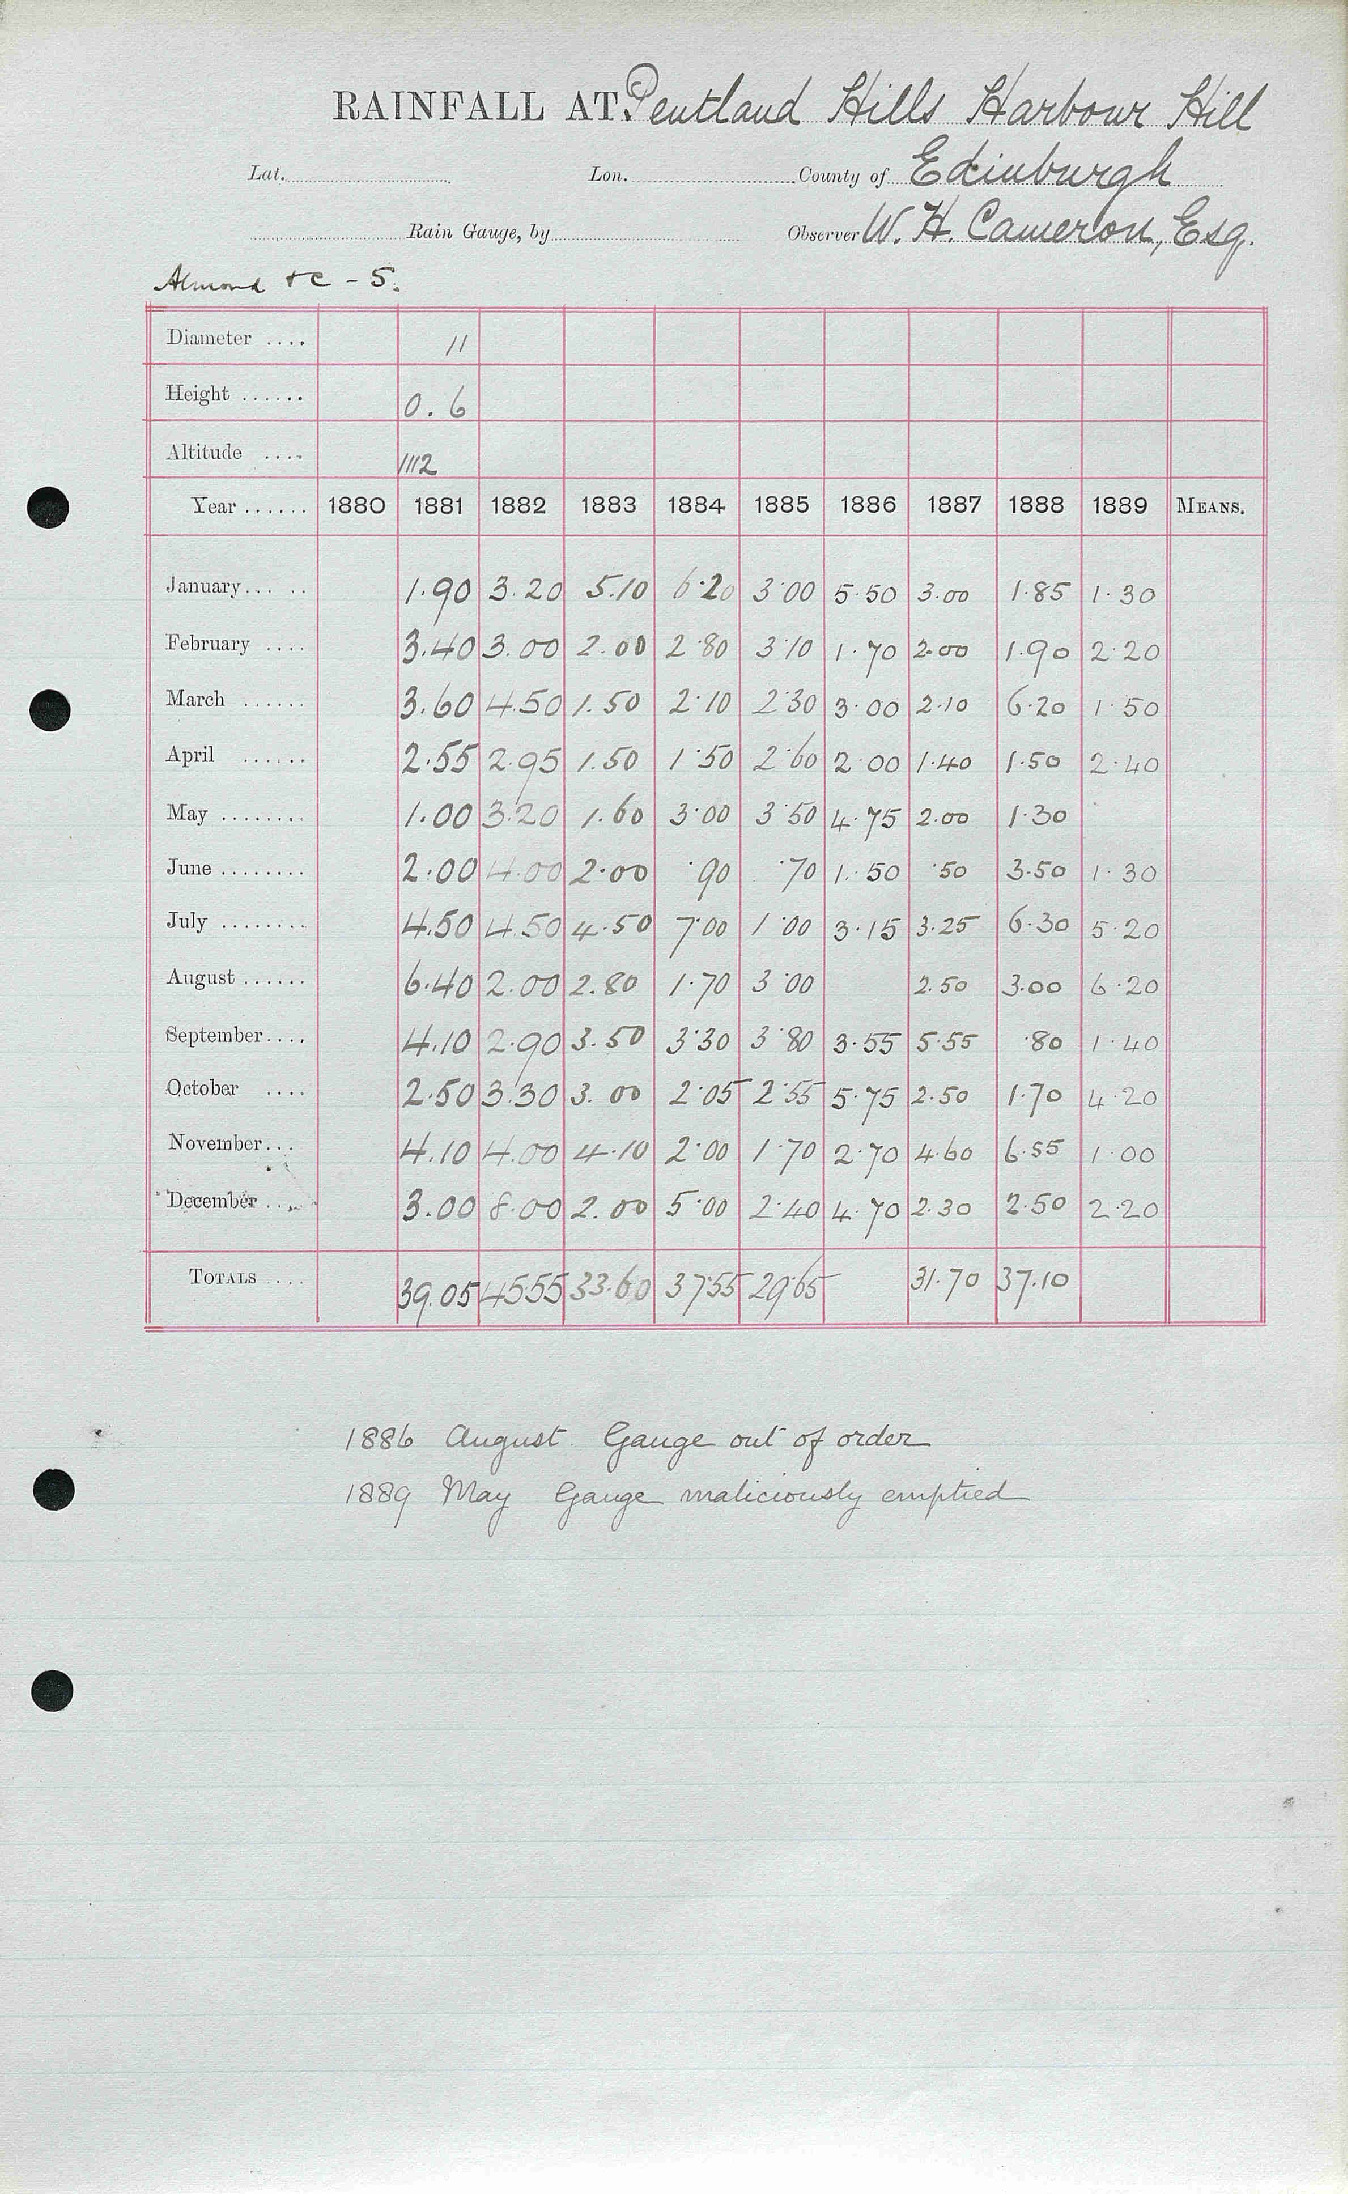 RAINFALL AT Pentland Hills Harbour Hill
Lat. Lon. County of Edinburgh
Rain Gauge, by Observer W. H. Cameron, Esq.
Almond &c - 5.
Diameter .... 11
Height ...... 0.6
Altitude .... 1112
Year ...... 1880 1881 1882 1883 1884 1885 1886 1887 1888 1889 MEANS.
January... .. 1.90 3.20 5.10 6.20 3.00 5.50 3.00 1.85 1.30
February .... 3.40 3.00 2.00 2.80 3.10 1.70 2.00 1.90 2.20
March ...... 3.60 4.50 1.50 2.10 2.30 3.00 2.10 6.20 1.50
April ...... 2.55 2.95 1.50 1.50 2.60 2.00 1.40 1.50 2.40
May ........ 1.00 3.20 1.60 3.00 3.50 4.75 2.00 1.30
June ........ 2.00 4.00 2.00 .90 .70 1.50 .50 3.50 1.30
July ........ 4.50 4.50 4.50 7.00 1.00 3.15 3.25 6.30 5.20
August ...... 6.40 2.00 2.80 1.70 3.00 2.50 3.00 6.20
September .... 4.10 2.90 3.50 3.30 3.80 3.55 5.55 .80 1.40
October .... 2.50 3.30 3.00 2.05 2.55 5.75 2.50 1.70 4.20
November... 4.10 4.00 4.10 2.00 1.70 2.70 4.60 6.55 1.00
December .... 3.00 8.00 2.00 5.00 2.40 4.70 2.30 2.50 2.20
TOTALS .... 39.05 45.55 33.60 37.55 29.65 31.70 37.10
1886 August Gauge out of order
1889 May Gauge maliciously emptied